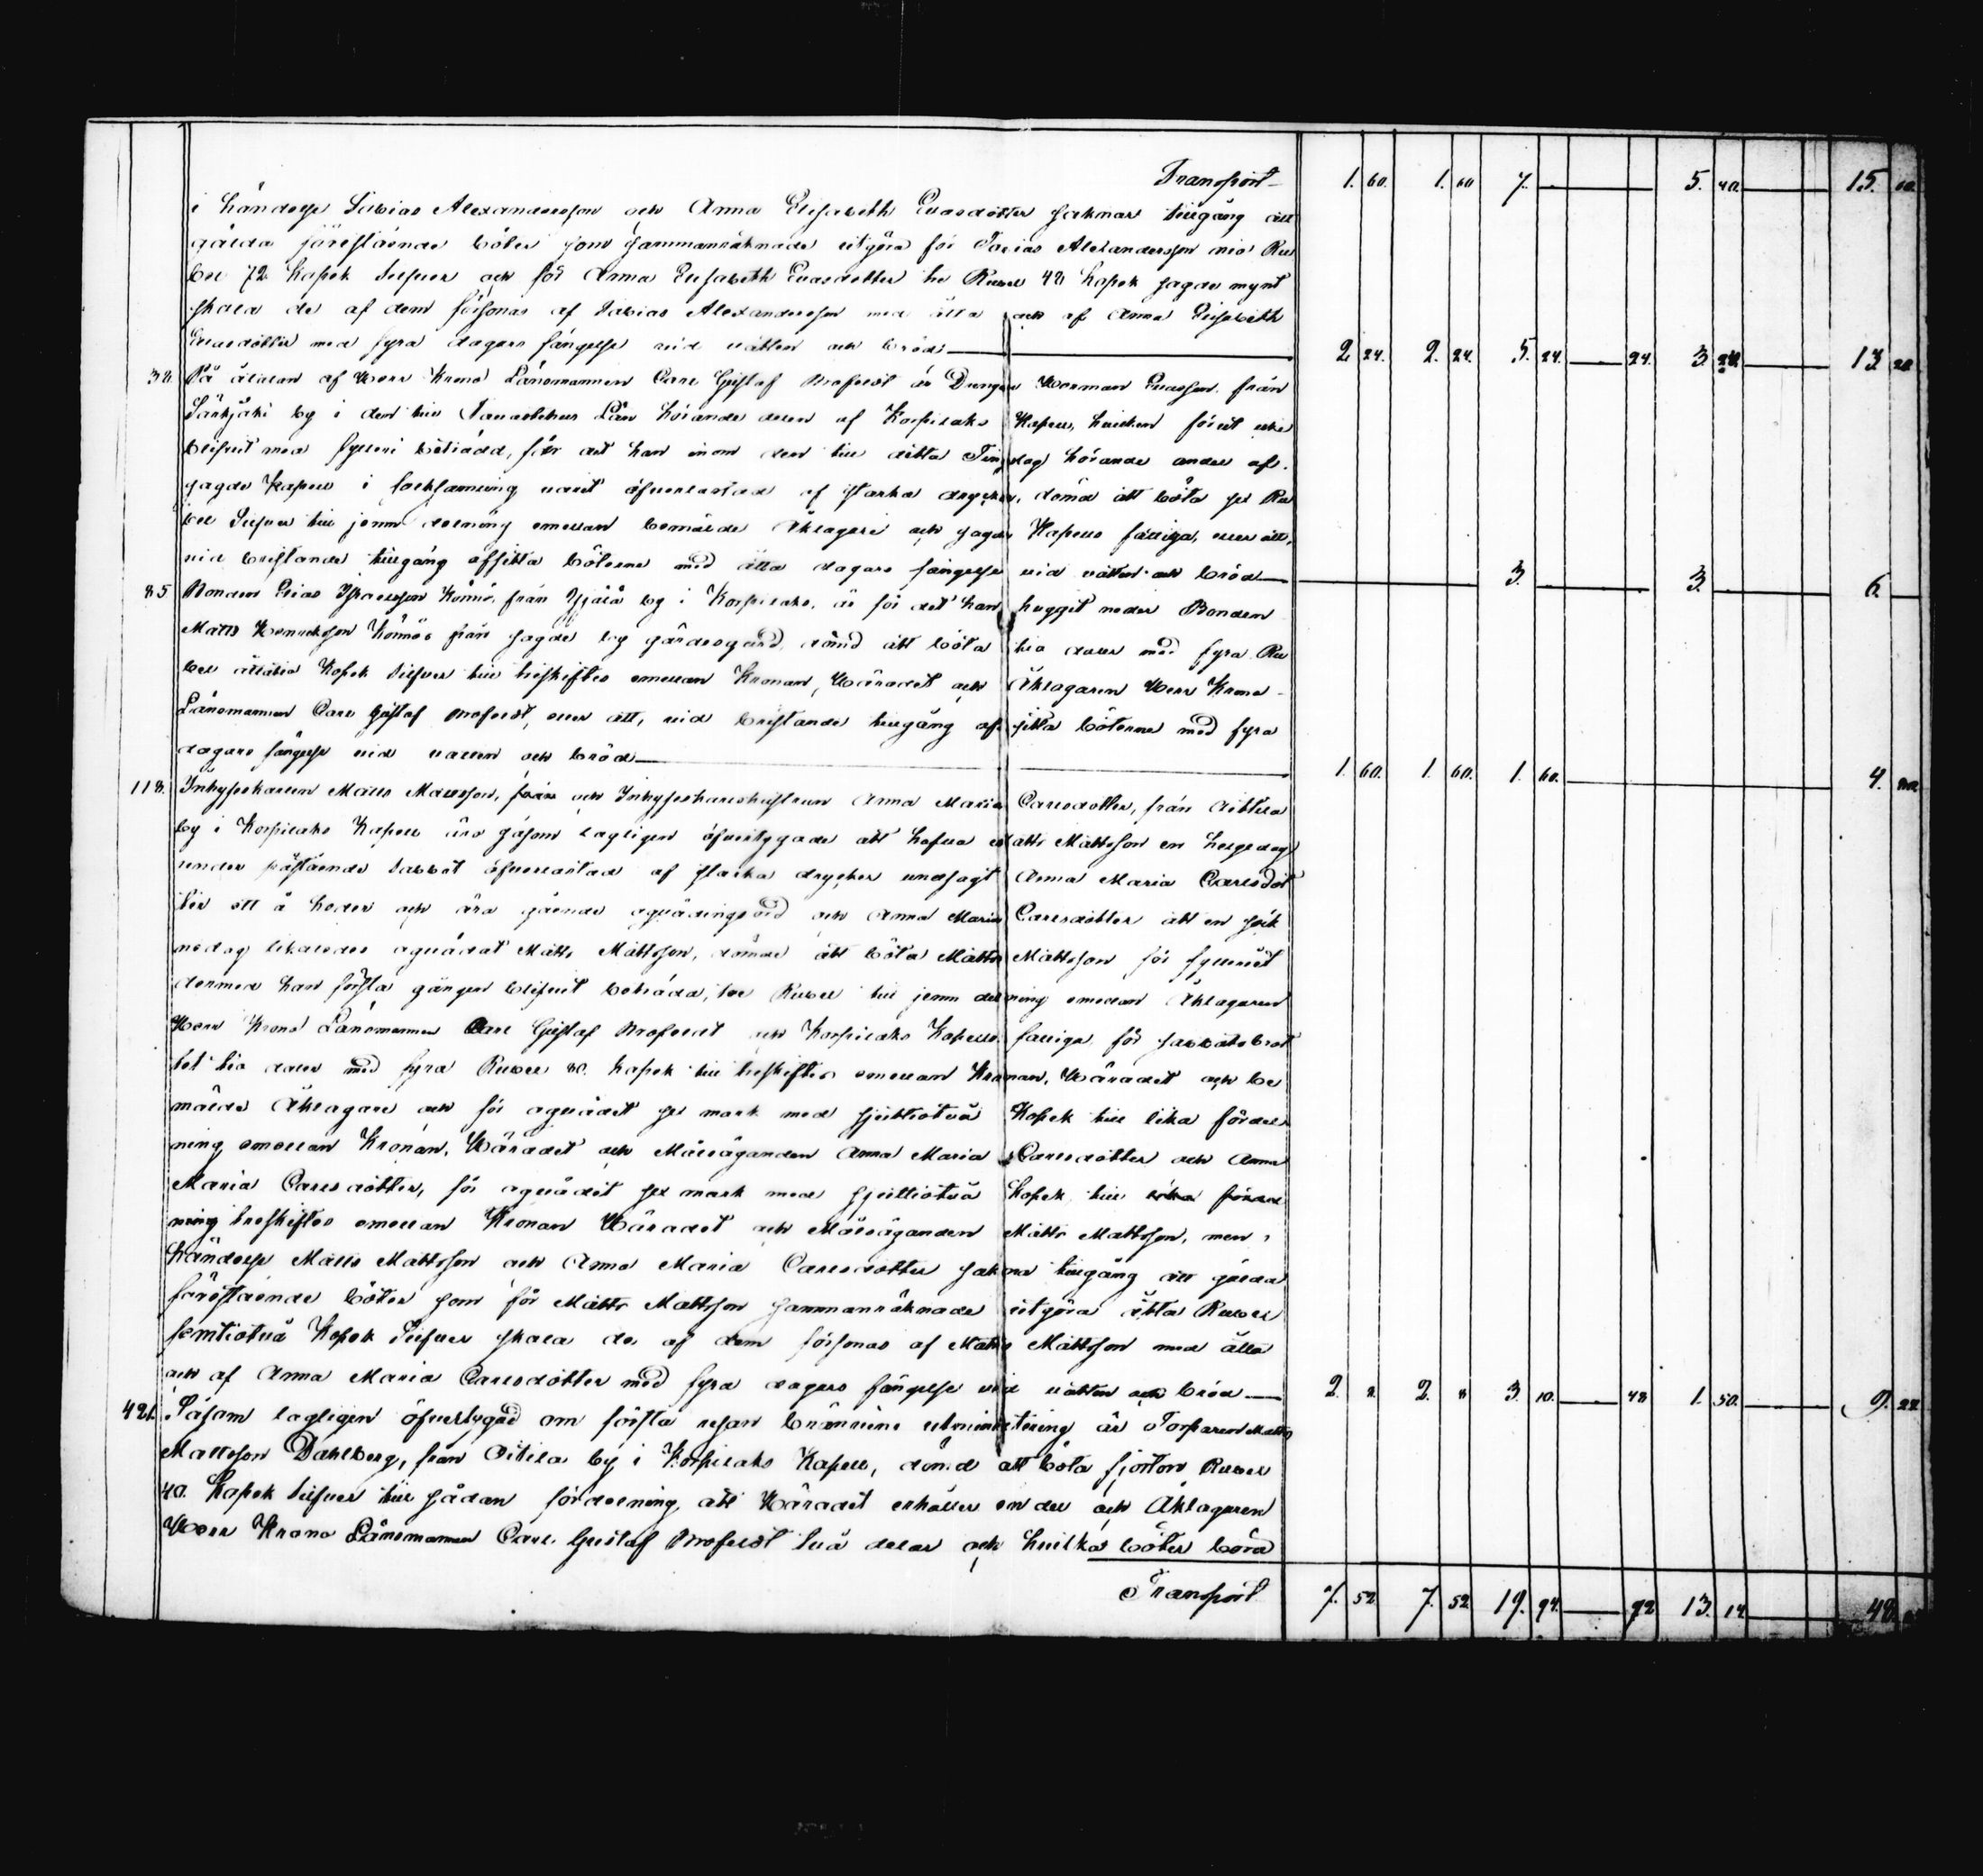 Transport 1. 60. 1. 60 7. — 5. 40. — 15. 60.
i händelse Tobias Alexandersson och Anna Elisabeth Enasdotter saknar tillgång att
gälda förestående böter som sammanräknade utgöra för Tobias Alexandersson nio Ru
bel 72 Kopek Silfver och för Anna Elisabeth Enasdotter tre Rubel 48 Kopek sagde mynt
skola de af dem försonas af Tobias Alexandersson med åtta och af Anna Elisabeth
Enasdotter med fyra dagars fängelse vid vatten och bröd — 2. 24. 2. 24. 5. 24. — 24. 3. 24. — 13. 20.
38. På åtalan af Herr Krono Länsmannen Carl Gustaf Brofeldt är Drengen Herman Enasson från
Särkjäki by i den till Tavastehus Län hörande delen af Korpilaks Kapell, hvilken förut icke
blifvit med fylleri beträdd, för det han inom den till detta Tingslag hörande andel af
sagde Kapell i folksamling varit öfverlastad af starka drycker, dömd att böta sex Ru
bel Silfver till jemn delning emellan bemälde Åklagare och sagde Kapells fattiga, eller att,
vid bristande tillgång afsitta böterne med åtta dagars fängelse vid vatten och bröd — 3. — 3. — 6. —
85 Bonden Elias Israelsson Könnö, från by i Korpilaks, är för det han huggit neder Bonden
Matts Henriksson Könnös från sagde by gärdesgård, dömd att böta tio daler med fyra Ru
bel åttatio Kopek Silfver till treskiftes emellan Kronan, Häradet och Åklagaren Herr Krono
Länsmannen Carl Gustaf Brofeldt, eller att, vid bristande tillgång afsitta böterne med fyra
dagars fängelse vid vatten och bröd — 1. 60. 1. 60. 1. 60. — 4. 80.
118. Inhyseskarlen Matts Mattsson, från och Inhyseskarlshustrun Anna Maria Carlsdotter, från
by i Korpilaks Kapell äro såsom lagligen öfvertygade att hafva Matts Mattsson en helgedag
under påstående sabbat öfverlastad af starka drycker undsagt Anna Maria Carlsdot
ter ett å heder och ära gående oqvädingsord och Anna Maria Carlsdotter att en sök
nedag likaledes oqvädat Matts Mattsson, dömde att böta Matts Mattsson för fylleriet
dermed han första gången blifvit beträdd, tre Rubel till jemn delning emellan Åklagaren
Herr Krono Länsmannen Carl Gustaf Brofeldt och Korpilaks Kapells fattiga för sabbatsbrot
tet tio daler med fyra Rubel 80. Kopek till treskiftes emellan Kronan, Häradet och be
mälde Åklagare och för oqvädet sex mark med sjuttiotvå Kopek till lika fördel
ning emellan Kronan, Häradet och Målsäganden Anna Maria Carlsdotter och Anna
Maria Carlsdotter, för oqvädet sex mark med sjuttiotvå Kopek till lika fördel
ning treskiftes emellan Kronan Häradet och Målsäganden Matts Mattsson, men i
händelse Matts Mattsson och Anna Maria Carlsdotter sakna tillgång att gälda
förestående böter som för Matts Mattsson sammanräknade utgöra åtta Rubel
femtiotvå Kopek Silfver skola de af dem försonas af Matts Mattsson med åtta
och af Anna Maria Carlsdotter med fyra dagars fängelse vid vatten och bröd — 2. 8. 2. 8 3. 10. — 48 1. 50. — 9. 24.
421. Såsom lagligen öfvertygad om första resan brännvins utminutering är Torparen Matts
Mattsson Dahlberg, från Oitila by i Korpilaks Kapell, dömd att böta fjorton Rubel
40. Kopek Silfver till sådan fördelning, att Häradet erhåller en del och Åklagaren
Herr Krono Länsmannen Carl Gustaf Brofeldt två delar och hvilka böter böra
Transport 7. 52 7. 52 19. 94. — 72 13. 14. — 48.